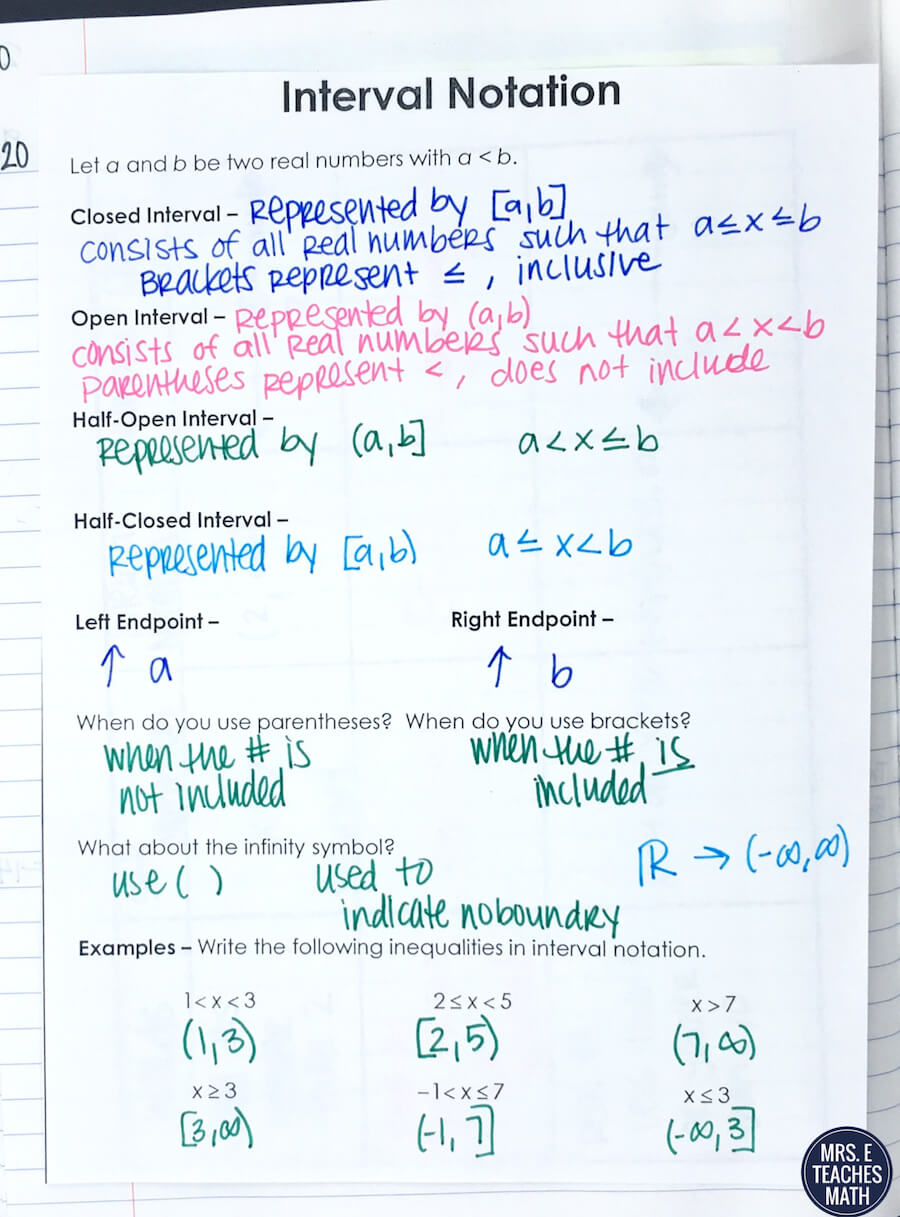 0
20
Interval Notation
Let a and b be two real numbers with a < b.
Closed Interval – Represented by [a,b]
consists of all real numbers such that a≤x≤b
Brackets represent ≤, inclusive
Open Interval – Represented by (a,b)
consists of all real numbers such that a<x<b
Parentheses represent <, does not include
Half-Open Interval –
Represented by (a,b] a<x≤b
Half-Closed Interval –
Represented by [a,b) a≤x<b
Left Endpoint – Right Endpoint –
↑ a ↑ b
When do you use parentheses? When do you use brackets?
when the # is when the # is
not included included
What about the infinity symbol?
use ( ) used to ℝ → (-∞,∞)
indicate no boundry
Examples – Write the following inequalities in interval notation.
1<x<3 2≤x<5 x>7
(1,3) [2,5) (7,∞)
x≥3 −1<x≤7 x≤3
[3,∞) (-1,7] (-∞,3]
MRS. E
TEACHES
MATH